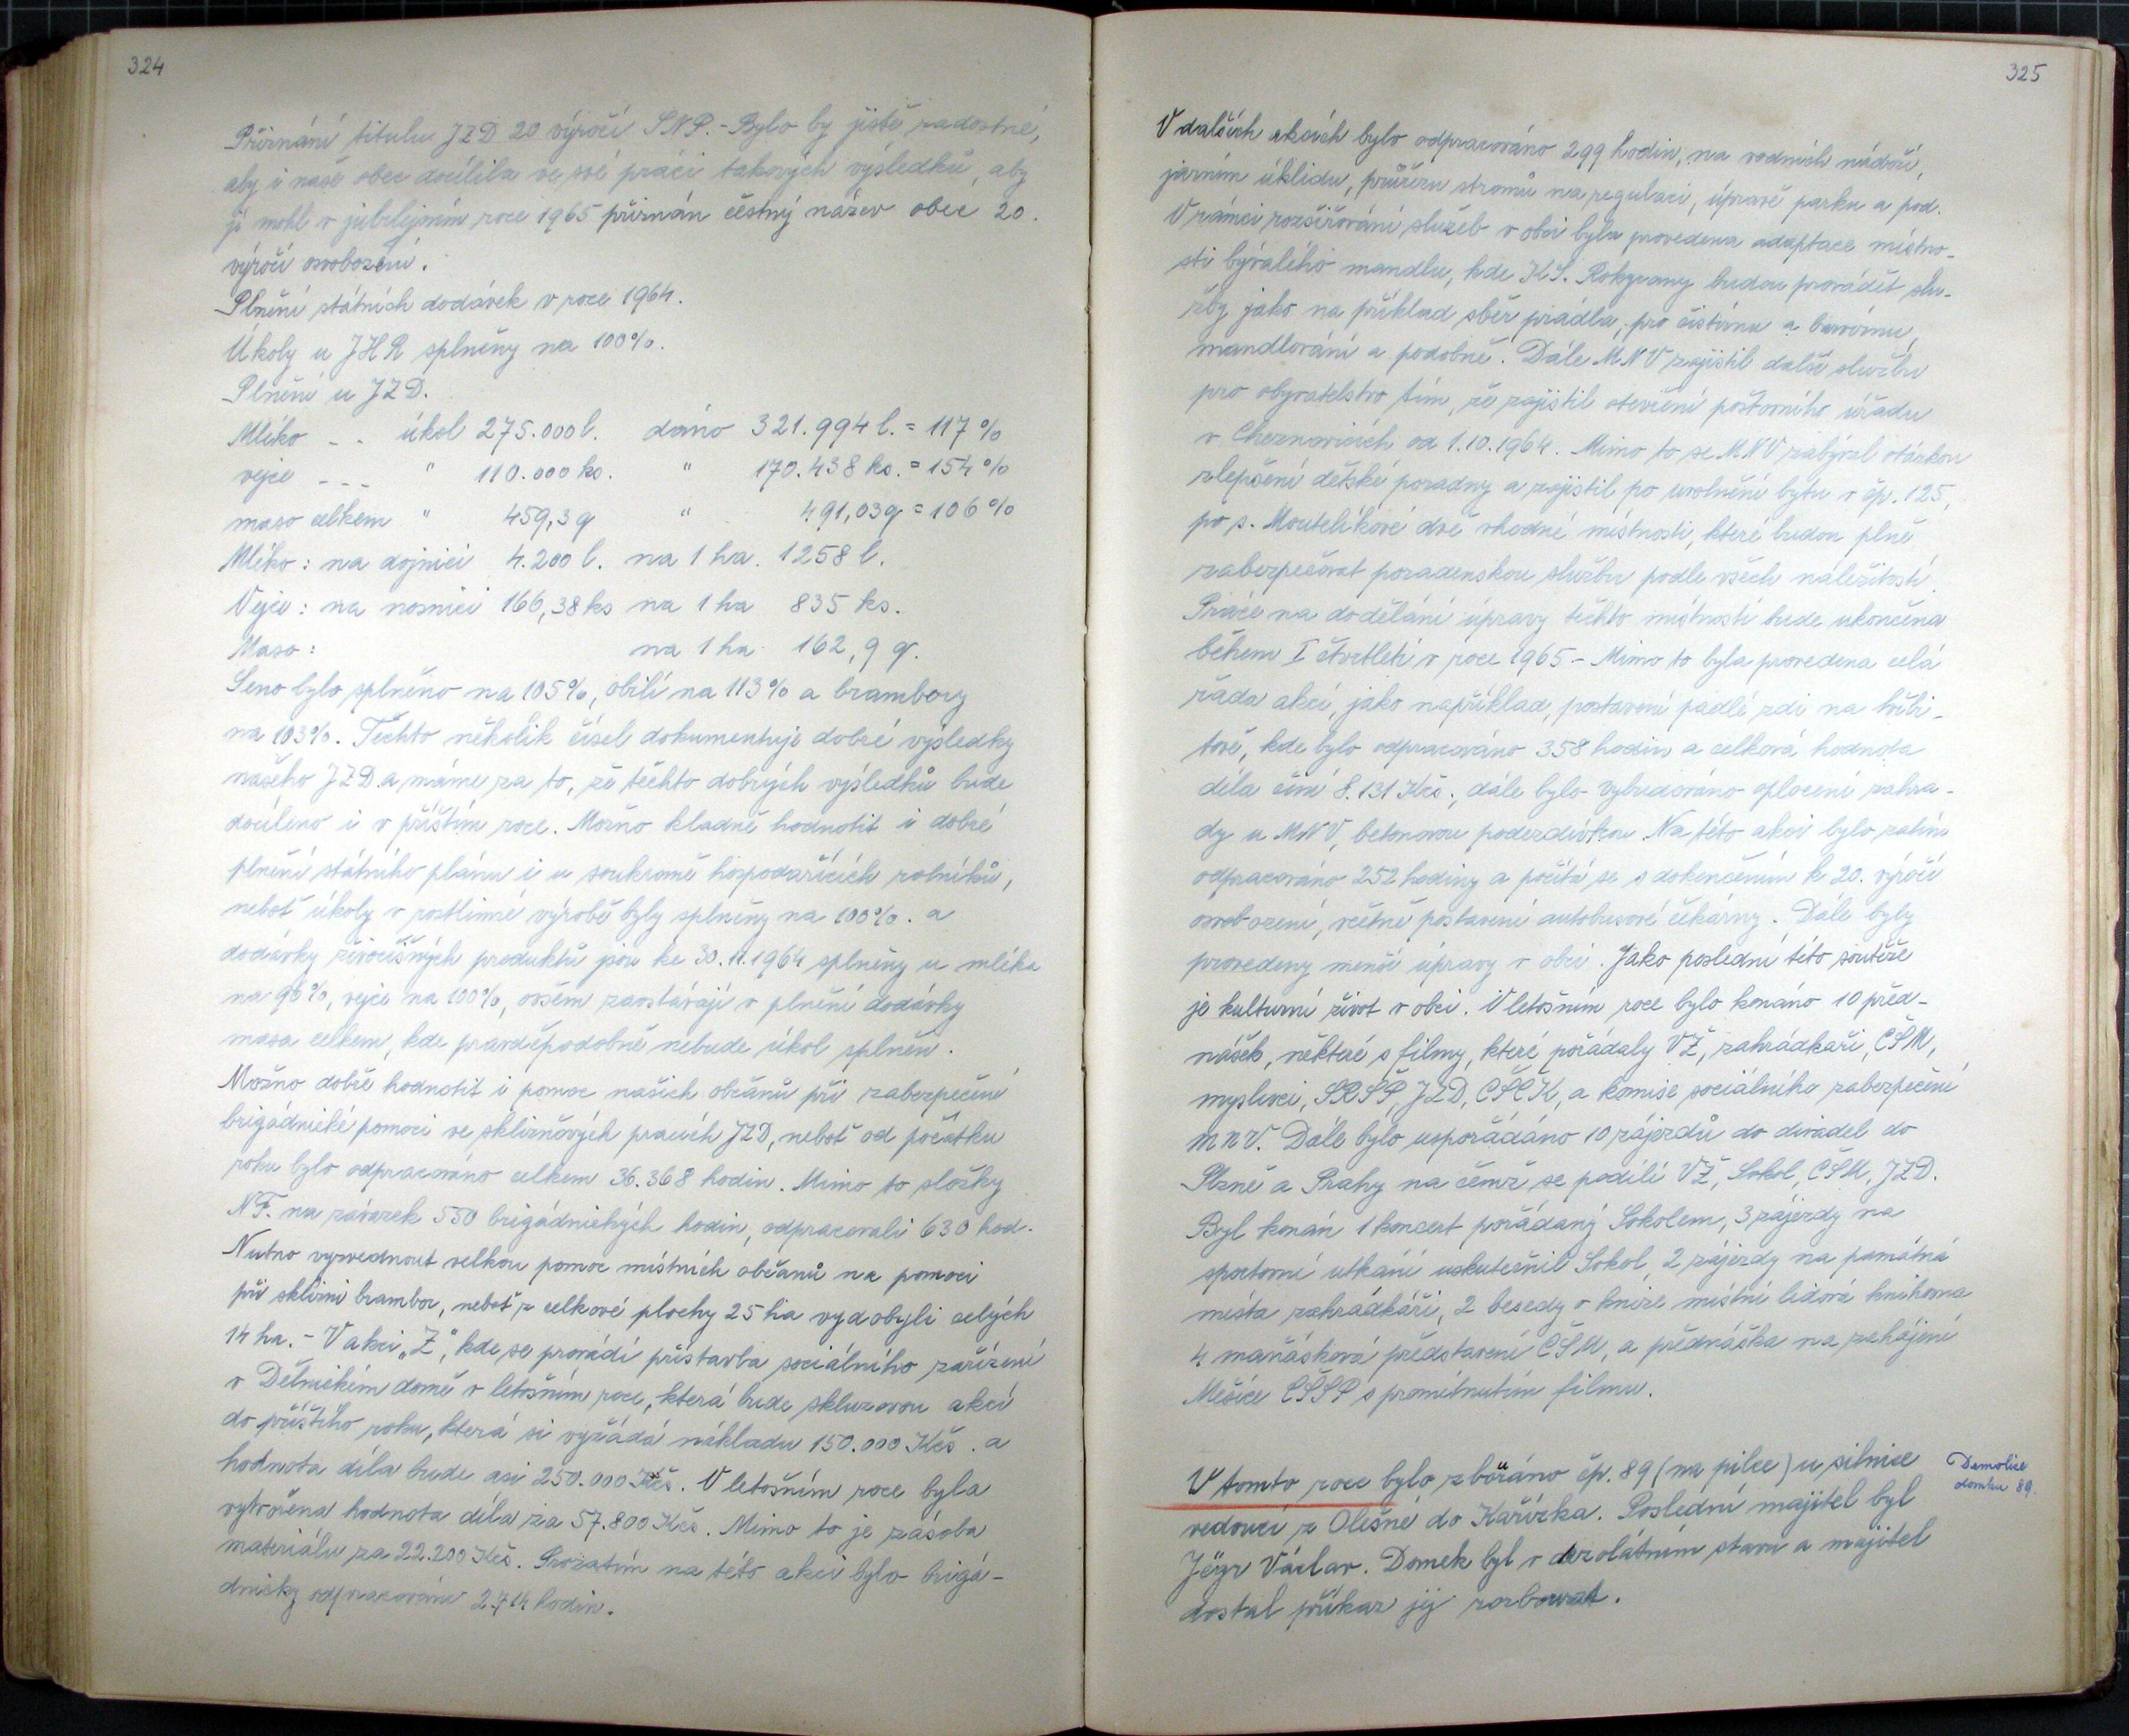 324
Přiznání titulu JZD 20 výročí SNP. - Bylo by jistě radostné,
aby i naše obec docílila ve své práci takových výsledků, aby
jí mohl v jubilejním roce 1965 přiznán čestný název obec 20.
výročí osvobození.
Plnění státních dodávek v roce 1964.
Úkoly u JHR splněny na 100%.
Plnění u JZD.
Mléko - - úkol 275.000 l. dáno 321.994 l. = 117 %
vejce - - - " 110.000 ks. " 170.438 ks. = 154 %
maso celkem " 459,3 q " 491,03 q = 106 %
Mléko: na dojnici 4.200 l. na 1 ha. 1258 l.
Vejce: na nosnici 166,38 ks na 1 ha 835 ks.
Maso: na 1 ha 162,9 q.
Seno bylo splněno na 105%, obilí na 113% a brambory
na 103%. Těchto několik čísel dokumentuje dobré výsledky
našeho JZD a máme za to, že těchto dobrých výsledků bude
docíleno i v příštím roce. Možno kladně hodnotit i dobré
plnění státního plánu i u soukromě hospodařících rolníků,
neboť úkoly v rostlinné výrobě byly splněny na 100%. a
dodávky živočišných produktů jsou ke 30.11.1964 splněny u mléka
na 96%, vejce na 100%, ovšem zaostávají v plnění dodávky
masa celkem, kde pravděpodobně nebude úkol splněn.
Možno dobře hodnotit i pomoc našich občanů při zabezpečení
brigádnické pomoci ve sklizňových pracích JZD, neboť od počátku
roku bylo odpracováno celkem 36.368 hodin. Mimo to složky
NF. na závazek 550 brigádnických hodin, odpracovali 630 hod.
Nutno vyzvednout velkou pomoc místních občanů na pomoci
při sklizni brambor, neboť z celkové plochy 25 ha vydobyli celých
14 ha. - V akci „Z", kde se provádí přístavba sociálního zařízení
v Dělnickém domě v letošním roce, která bude skluzovou akcí
do příštího roku, která si vyžádá nákladu 150.000 Kčs. a
hodnota díla bude asi 250.000 Kčs. V letošním roce byla
vytvořena hodnota díla za 57.800 Kčs. Mimo to je zásoba
materiálu za 22.200 Kčs. Prozatím na této akci bylo brigá-
dnicky odpracováno 2714 hodin.
325
V dalších akcích bylo odpracováno 299 hodin, na vodních nádrží,
jarním úklidu, průřezu stromů na regulaci, úpravě parku a pod.
V rámci rozšiřování služeb v obci byla provedena adaptace místno-
sti bývalého mandlu, kde K.S. Rokycany budou provádět slu-
žby jako na příklad sběr prádla, pro čistírnu a barvírnu,
mandlování a podobně. Dále MNV zajistil další službu
pro obyvatelstvo tím, že zajistil otevření poštovního úřadu
v Cheznovicích od 1.10.1964. Mimo to se MNV zabýval otázkou
zlepšení dětské poradny a zajistil po uvolnění bytu v čp. 125,
po s. Moutelíkové dvě vhodné místnosti, které budou plně
zabezpečovat poradenskou službu podle všech náležitostí.
Práce na dodělání úpravy těchto místností bude ukončena
během I čtvrtletí v roce 1965. - Mimo to byla provedena celá
řada akcí, jako například, postavení padlé zdi na hřbi-
tově, kde bylo odpracováno 358 hodin a celková hodnota
díla činí 8.131 Kčs., dále bylo vybudováno oplocení zahra-
dy u MNV, betonovou podezdívkou. Na této akci bylo zatím
odpracováno 252 hodiny a počítá se s dokončením k 20. výročí
osvobození, včetně postavení autobusové čekárny. Dále byly
provedeny menší úpravy v obci. Jako poslední této soutěže
je kulturní život v obci. V letošním roce bylo konáno 10 před-
nášek, některé s filmy, které pořádaly VŽ, zahrádkáři, ČSM,
myslivci, SRPŠ, JZD, ČSČK, a komise sociálního zabezpečení
MNV. Dále bylo uspořádáno 10 zájezdů do divadel do
Plzně a Prahy na čemž se podílí VŽ, Sokol, ČSM, JZD.
Byl konán 1 koncert pořádaný Sokolem, 3 zájezdy na
sportovní utkání uskutečnil Sokol, 2 zájezdy na památná
místa zahrádkáři, 2 besedy o knize místní lidová knihovna
4 maňásková představení ČSM, a přednáška na zahájení
Měsíce ČSSP s promítnutím filmu.
V tomto roce bylo zbořáno čp. 89 (na pilce) u silnice
vedoucí z Olešné do Kařízka. Poslední majitel byl
Jägr Václav. Domek byl v dezolátním stavu a majitel
dostal příkaz jej rozbourat.
Demolice
domku 89.